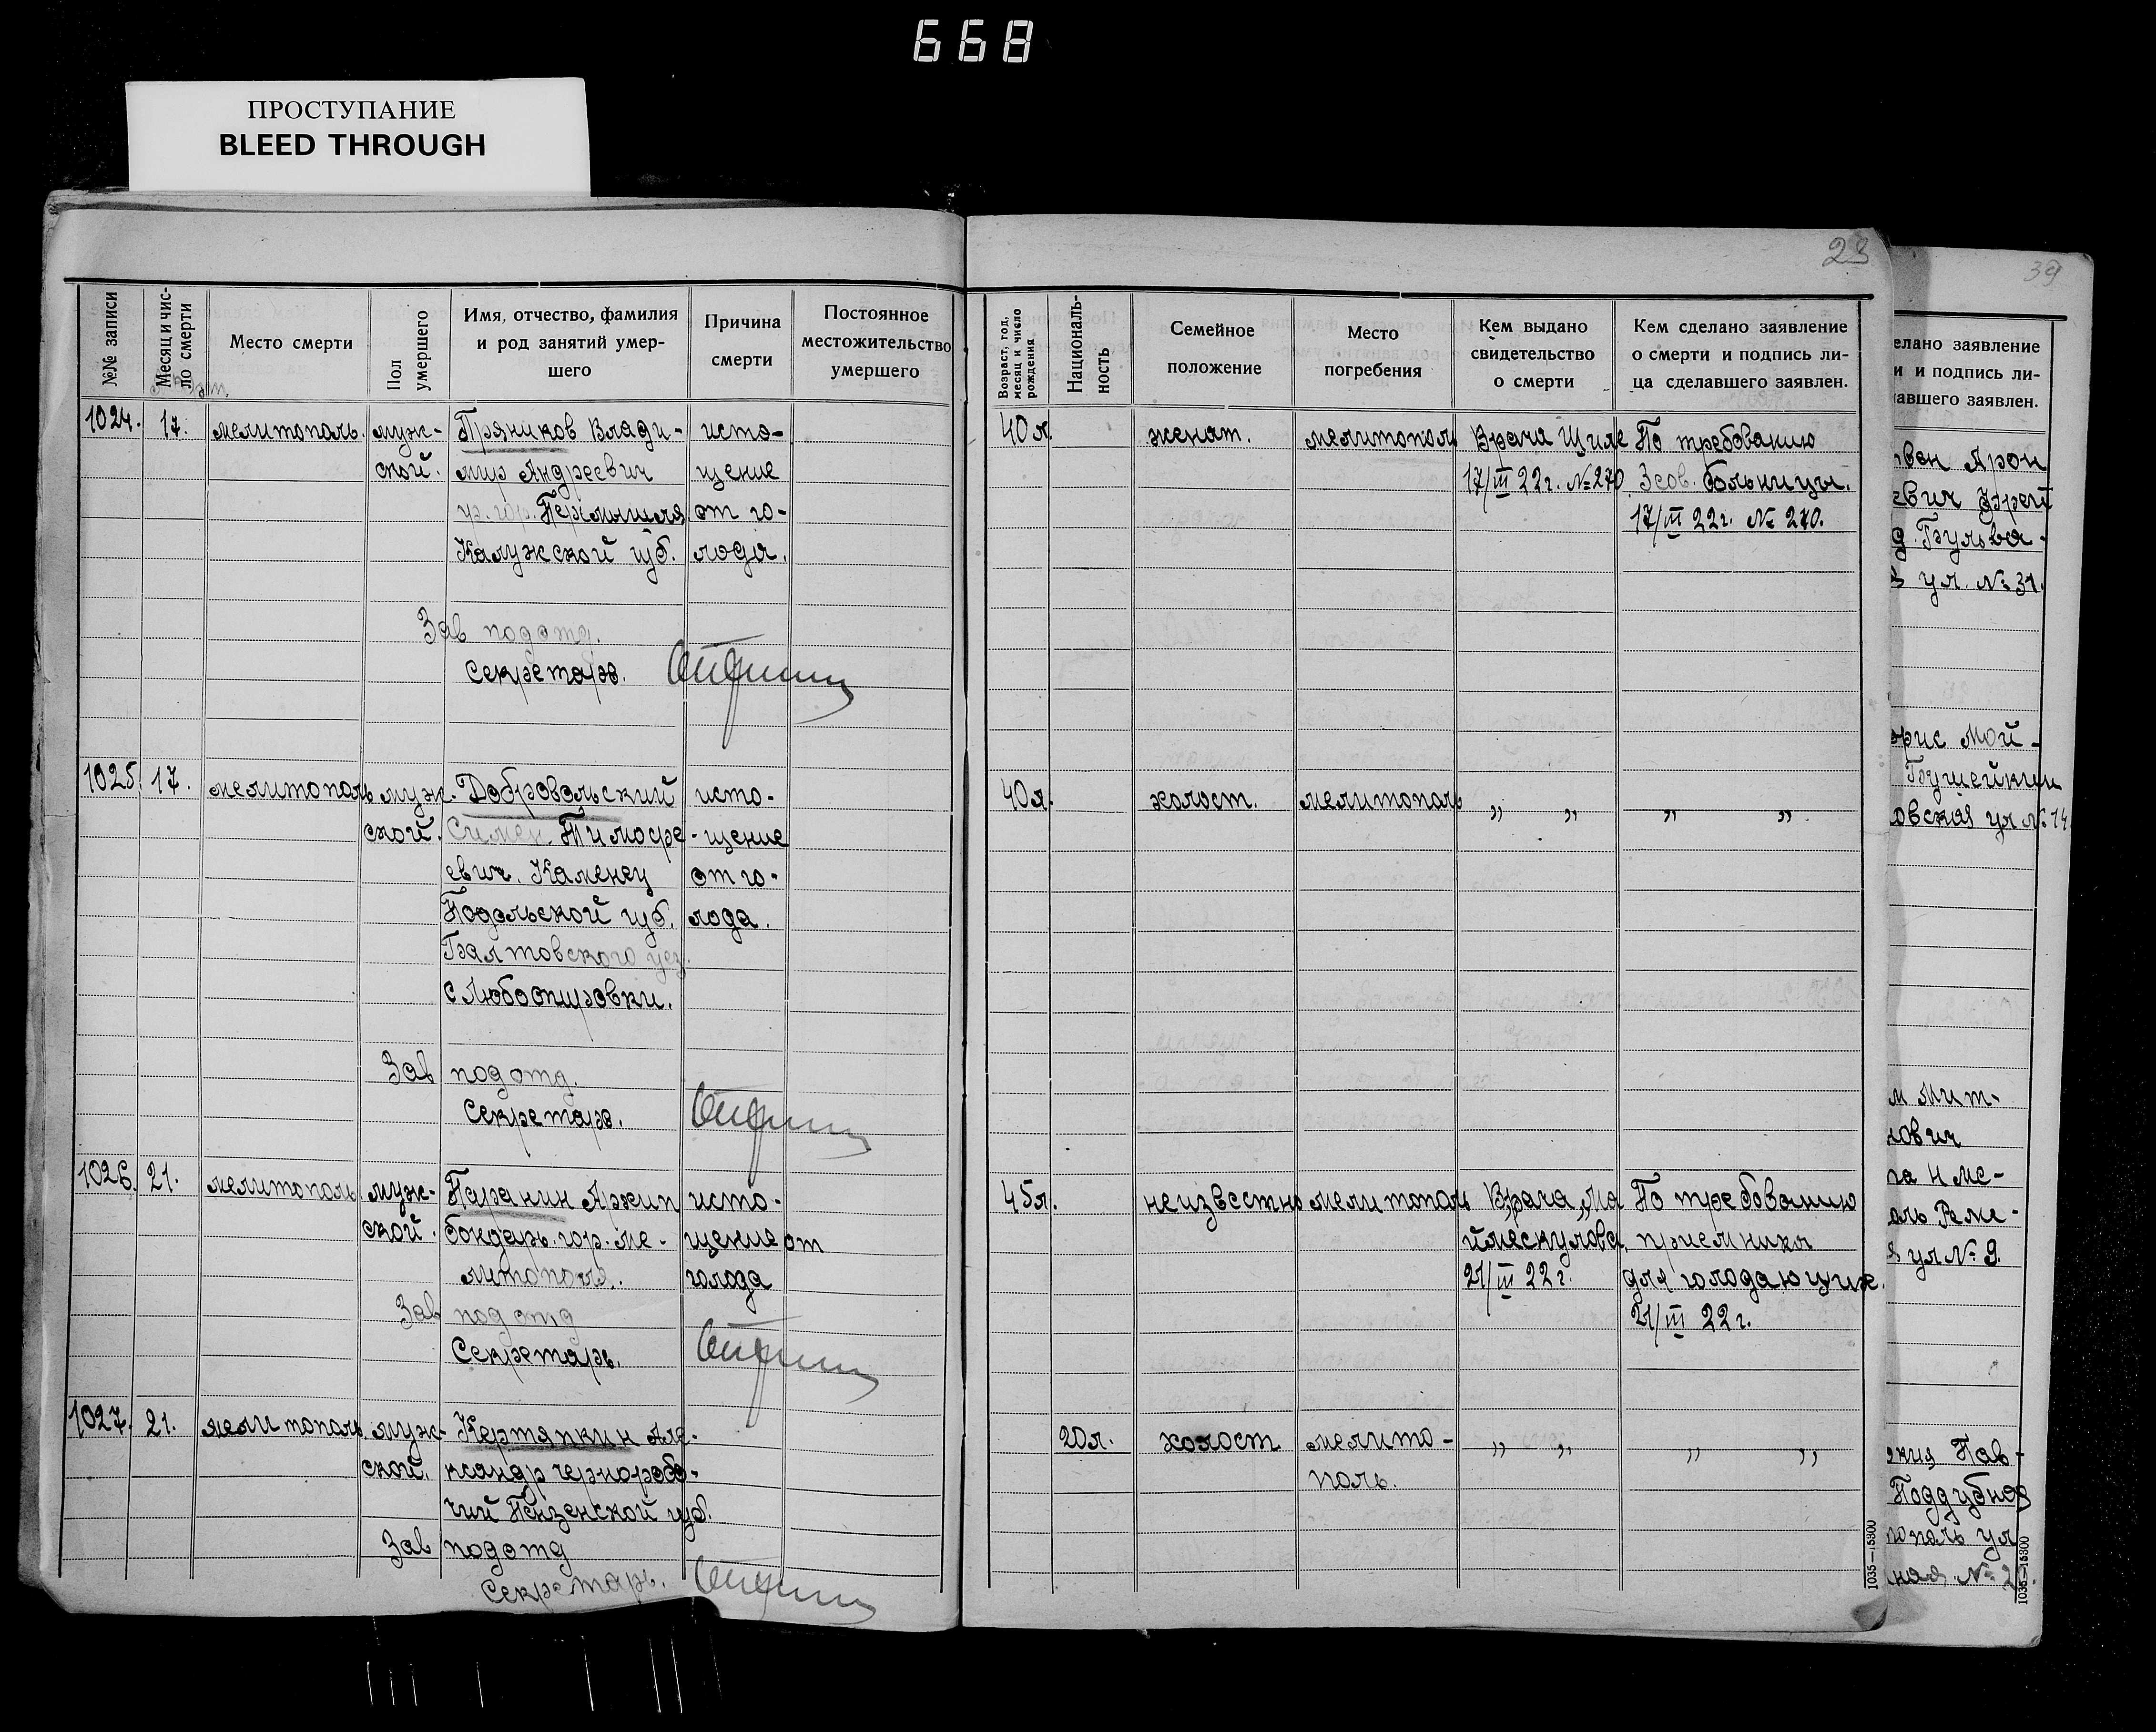 668
ПРОСТУПАНИЕ
BLEED THROUGH
23
39
№№ записи
Месяц и чис-
ло смерти
Место смерти
Пол
умершего
Имя, отчество, фамилия
и род занятий умер-
шего
Причина
смерти
Постоянное
местожительство
умершего
Возраст, год,
месяц и число
рождения
Националь-
ность
Семейное
положение
Место
погребения
Кем выдано
свидетельство
о смерти
Кем сделано заявление
о смерти и подпись ли-
ца сделавшего заявлен.
март
1024. 17. мелитополь. муж- Пряников Влади- исто- 40 л. женат. мелитополь Врача Щиле По требованию
ской. мир Андреевич щение 17/III 22 г. № 270 3 сов. больницы.
ур. гор. Перемышля от го- 17/III 22 г. № 270.
Калужской губ. лода.
Зав подотд.
Секретарь.
1025. 17. мелитополь муж- Добровольский исто- 40 л. холост. мелитополь „ „ „ „
ской. Симен Тимофе -щение
евич. Каменец от го-
Подольской губ. лода.
Балтовского уез.
с Любоопировки.
Зав подотд.
Секретарь.
1026. 21. мелитополь. муж- Паранин Архип исто- 45 л. неизвестно мелитополь Врача „Ма По требованию
ской. бондарь. гор. Ме- щение от приемника
литополя. голода 21/III 22 г. для голодающих.
21/III 22 г.
Зав подотд
Секретарь.
1027. 21. мелитополь. муж- Кертяпкин Але- 20 л. холост мелито- „ „ „ „
ской. ксандр чернорабо- поль.
чий Пензенской губ.
Зав подотд
Секретарь.
1035—15300
елано заявление
и и подпись ли-
лавшего заявлен.
Арон
евич
д. Бульва-
ул. № 31.
орис Мой-
Бушейкин
овская ул № 14
м Мит-
нович
на н Ме-
оль Реме-
я ул № 9.
Пав-
Поддубная
тополь ул
ная №
1035—15300